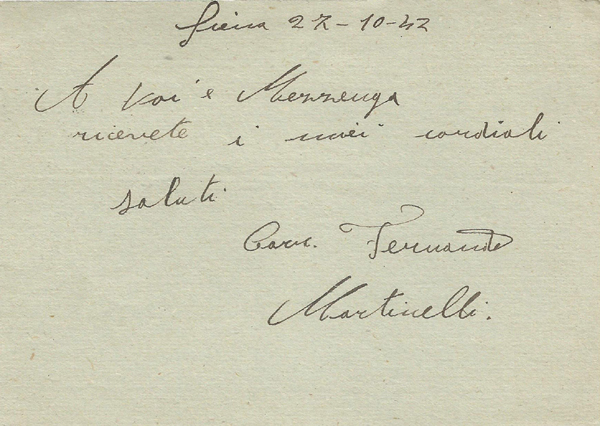 Siena 27-10-42
A Voi e Mezzenga
ricevete i miei cordiali
saluti.
Carr. Fernando
Martinelli.